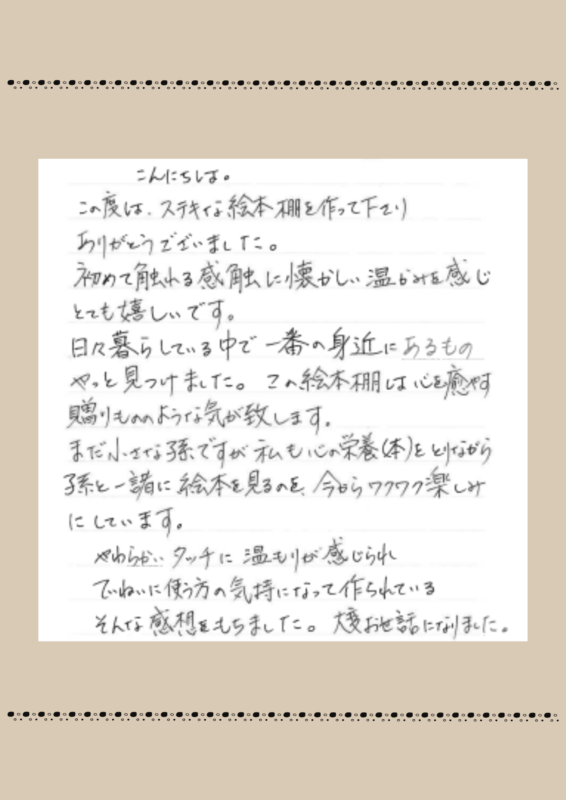 こんにちは。
この度は、ステキな絵本棚を作って下さり
ありがとうございました。
初めて触れる感触に懐かしい温かみを感じ
とても嬉しいです。
日々暮らしている中で一番の身近にあるもの
やっと見つけました。この絵本棚は心を癒やす
贈りもののような気が致します。
まだ小さな孫ですが私も心の栄養(本)をとりながら
孫と一諸に絵本を見るのを、今からワクワク楽しみ
にしています。
やわらかいタッチに温もりが感じられ
ていねいに使う方の気持になって作られている
そんな感想をもちました。大変お世話になりました。